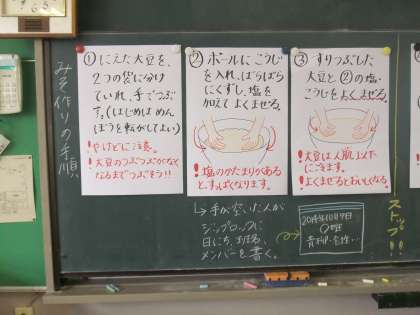 みそ作りの手順
①にえた大豆を、
2つの袋に分け
ていれ、手でつぶ
す。(はじめはめん
ぼうを転がしてよい)
!やけどに注意。
!大豆のつぶつぶがなく
なるまでつぶそう!!
②ボールにこうじ
を入れ、ばらばら
にくずし、塩を
加えてよくまぜる。
!塩のかたまりがある
と、すっぱくなります。
③すりつぶした
大豆と②の塩・
こうじをよくまぜる。
!大豆は人肌以下
に冷ます。
!よくまぜるとおいしくなる
↳手が空いた人が
ジップロックに
日にち、班名、
メンバーを書く。
ストップ!!